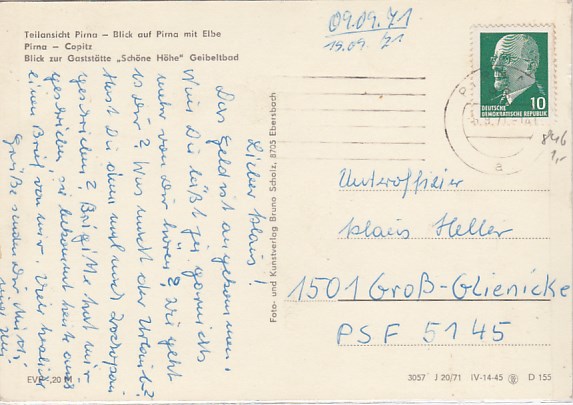 Teilansicht Pirna – Blick auf Pirna mit Elbe
Pirna – Copitz
Blick zur Gaststätte „Schöne Höhe" Geibeltbad
09.09.71
15.09. 71
Lieber Klaus!
Das Geld ist angekommen.
Nun Du läßt ja garnichts
mehr von Dir hören? Wie geht
es Dir? Was macht der Urlaub?
Hast Du denn mal nach
geschrieben? Brigitte hat mir
geschrieben, sie bekommt heute auch
einen Brief von mir. Viele
Grüße sendet Dir
Foto- und Kunstverlag Bruno Scholz, 8705 Ebersbach
DEUTSCHE
DEMOKRATISCHE REPUBLIK
10
a
846
1,-
Unteroffizier
Klaus Heller
1501 Groß-Glienicke
PSF 5145
EVP -,20 M
3057 J 20/71 IV-14-45 D 155